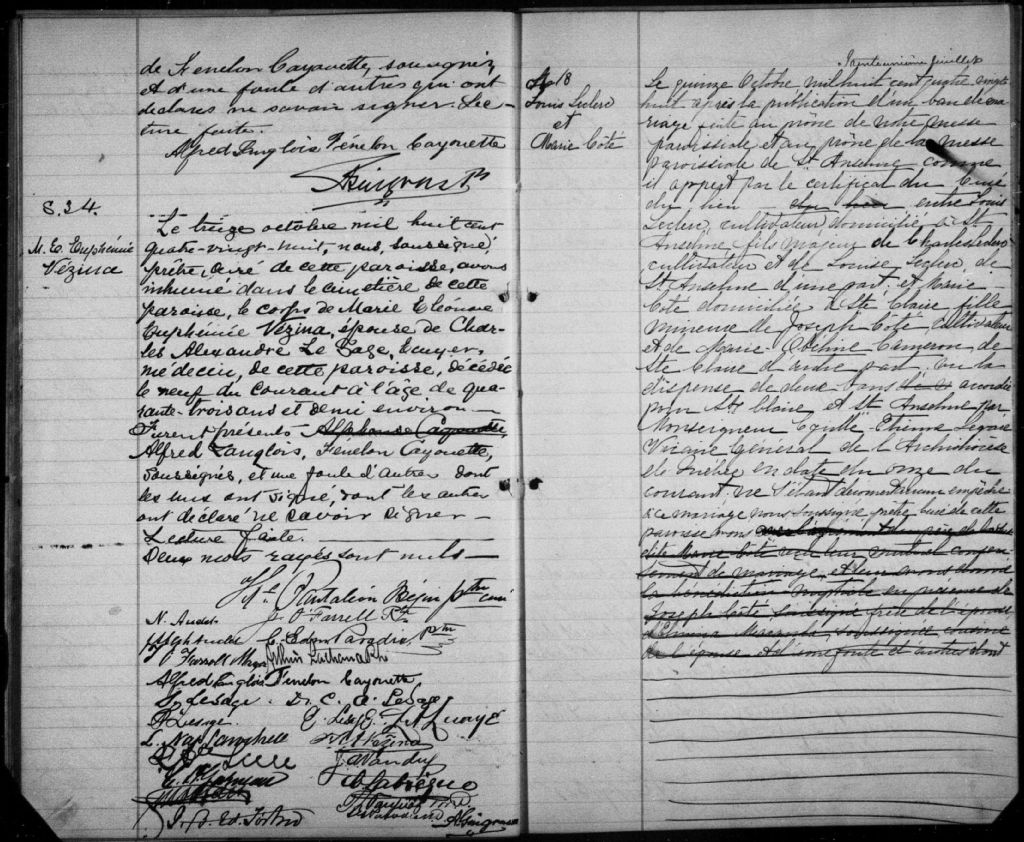 de Fenelon Cayouette, soussignés,
et d'une foule d'autres qui ont
déclarés ne savoir signer. Lec-
ture faite.
Alfred Langlois Fénelon Cayouette
S. 34.
M. E. Euphémie
Vézina
Le treize octobre mil huit cent
quatre-vingt-huit, nous, soussigné,
prêtre, curé de cette paroisse, avons
inhumé dans le cimetière de cette
paroisse, le corps de Marie Eléonore
Euphémie Vézina, épouse de Char-
les Alexandre Le Sage, Ecuyer,
médecin, de cette paroisse, décédée
le neuf du courant à l'âge de qua-
rante-trois ans et demi environ —
Furent présents Alphonse Cayouette,
Alfred Langlois, Fenelon Cayouette,
soussignés, et une foule d'autres dont
les uns ont signé, dont les autres
ont déclaré ne savoir signer —
Lecture faite.
Deux mots rayés sont nuls —
Pantaléon Bégin ptre curé
N. Audet J. O'Farrell
C. Edm. Paradis ptre
O'Farrell
Alfred Langlois Fenelon Cayouette
Lesage. Dr. C. A. Lesage
Lesage.
L. Nap. Campbell Vézina
J. A. Vandry
Fortin
Trente unième feuillet
18
Louis Leclerc
et
Marie Côté
Le quinze Octobre mil huit cent quatre vingt
huit après la publication d'un ban de ma-
riage faite au prône de notre messe
paroissiale et au prône de la messe
paroissiale de St Anselme comme
il appert par le certificat du Curé
du lieu — du lieu entre Louis
Leclerc, cultivateur, domicilié à St
Anselme fils majeur de Charles Leclerc
cultivateur et de Louise Leclerc, de
St Anselme d'une part; et Marie
Côté domiciliée à Ste Claire fille
mineure de Joseph Côté, cultivateur
et de Marie Obéline Cameron de
Ste Claire d'autre part; vu la
dispense de deux bans accordée
pour Ste Claire et St Anselme par
Monseigneur Cyrille Etienne Légaré
Vicaire Général de l'Archidiocèse
de Québec en date du onze du
courant ne s'étant découvert aucun empêche
à ce mariage nous soussigné prêtre curé de cette
paroisse avons avec l'agrément du père de la sus
dite Marie Côté reçu leur mutuel consen-
tement de mariage et leur avons donné
la bénédiction nuptiale en présence de
Joseph Côté soussigné père de l'épouse
soussignée cousine
de l'épouse et d'une foule d'autres dont